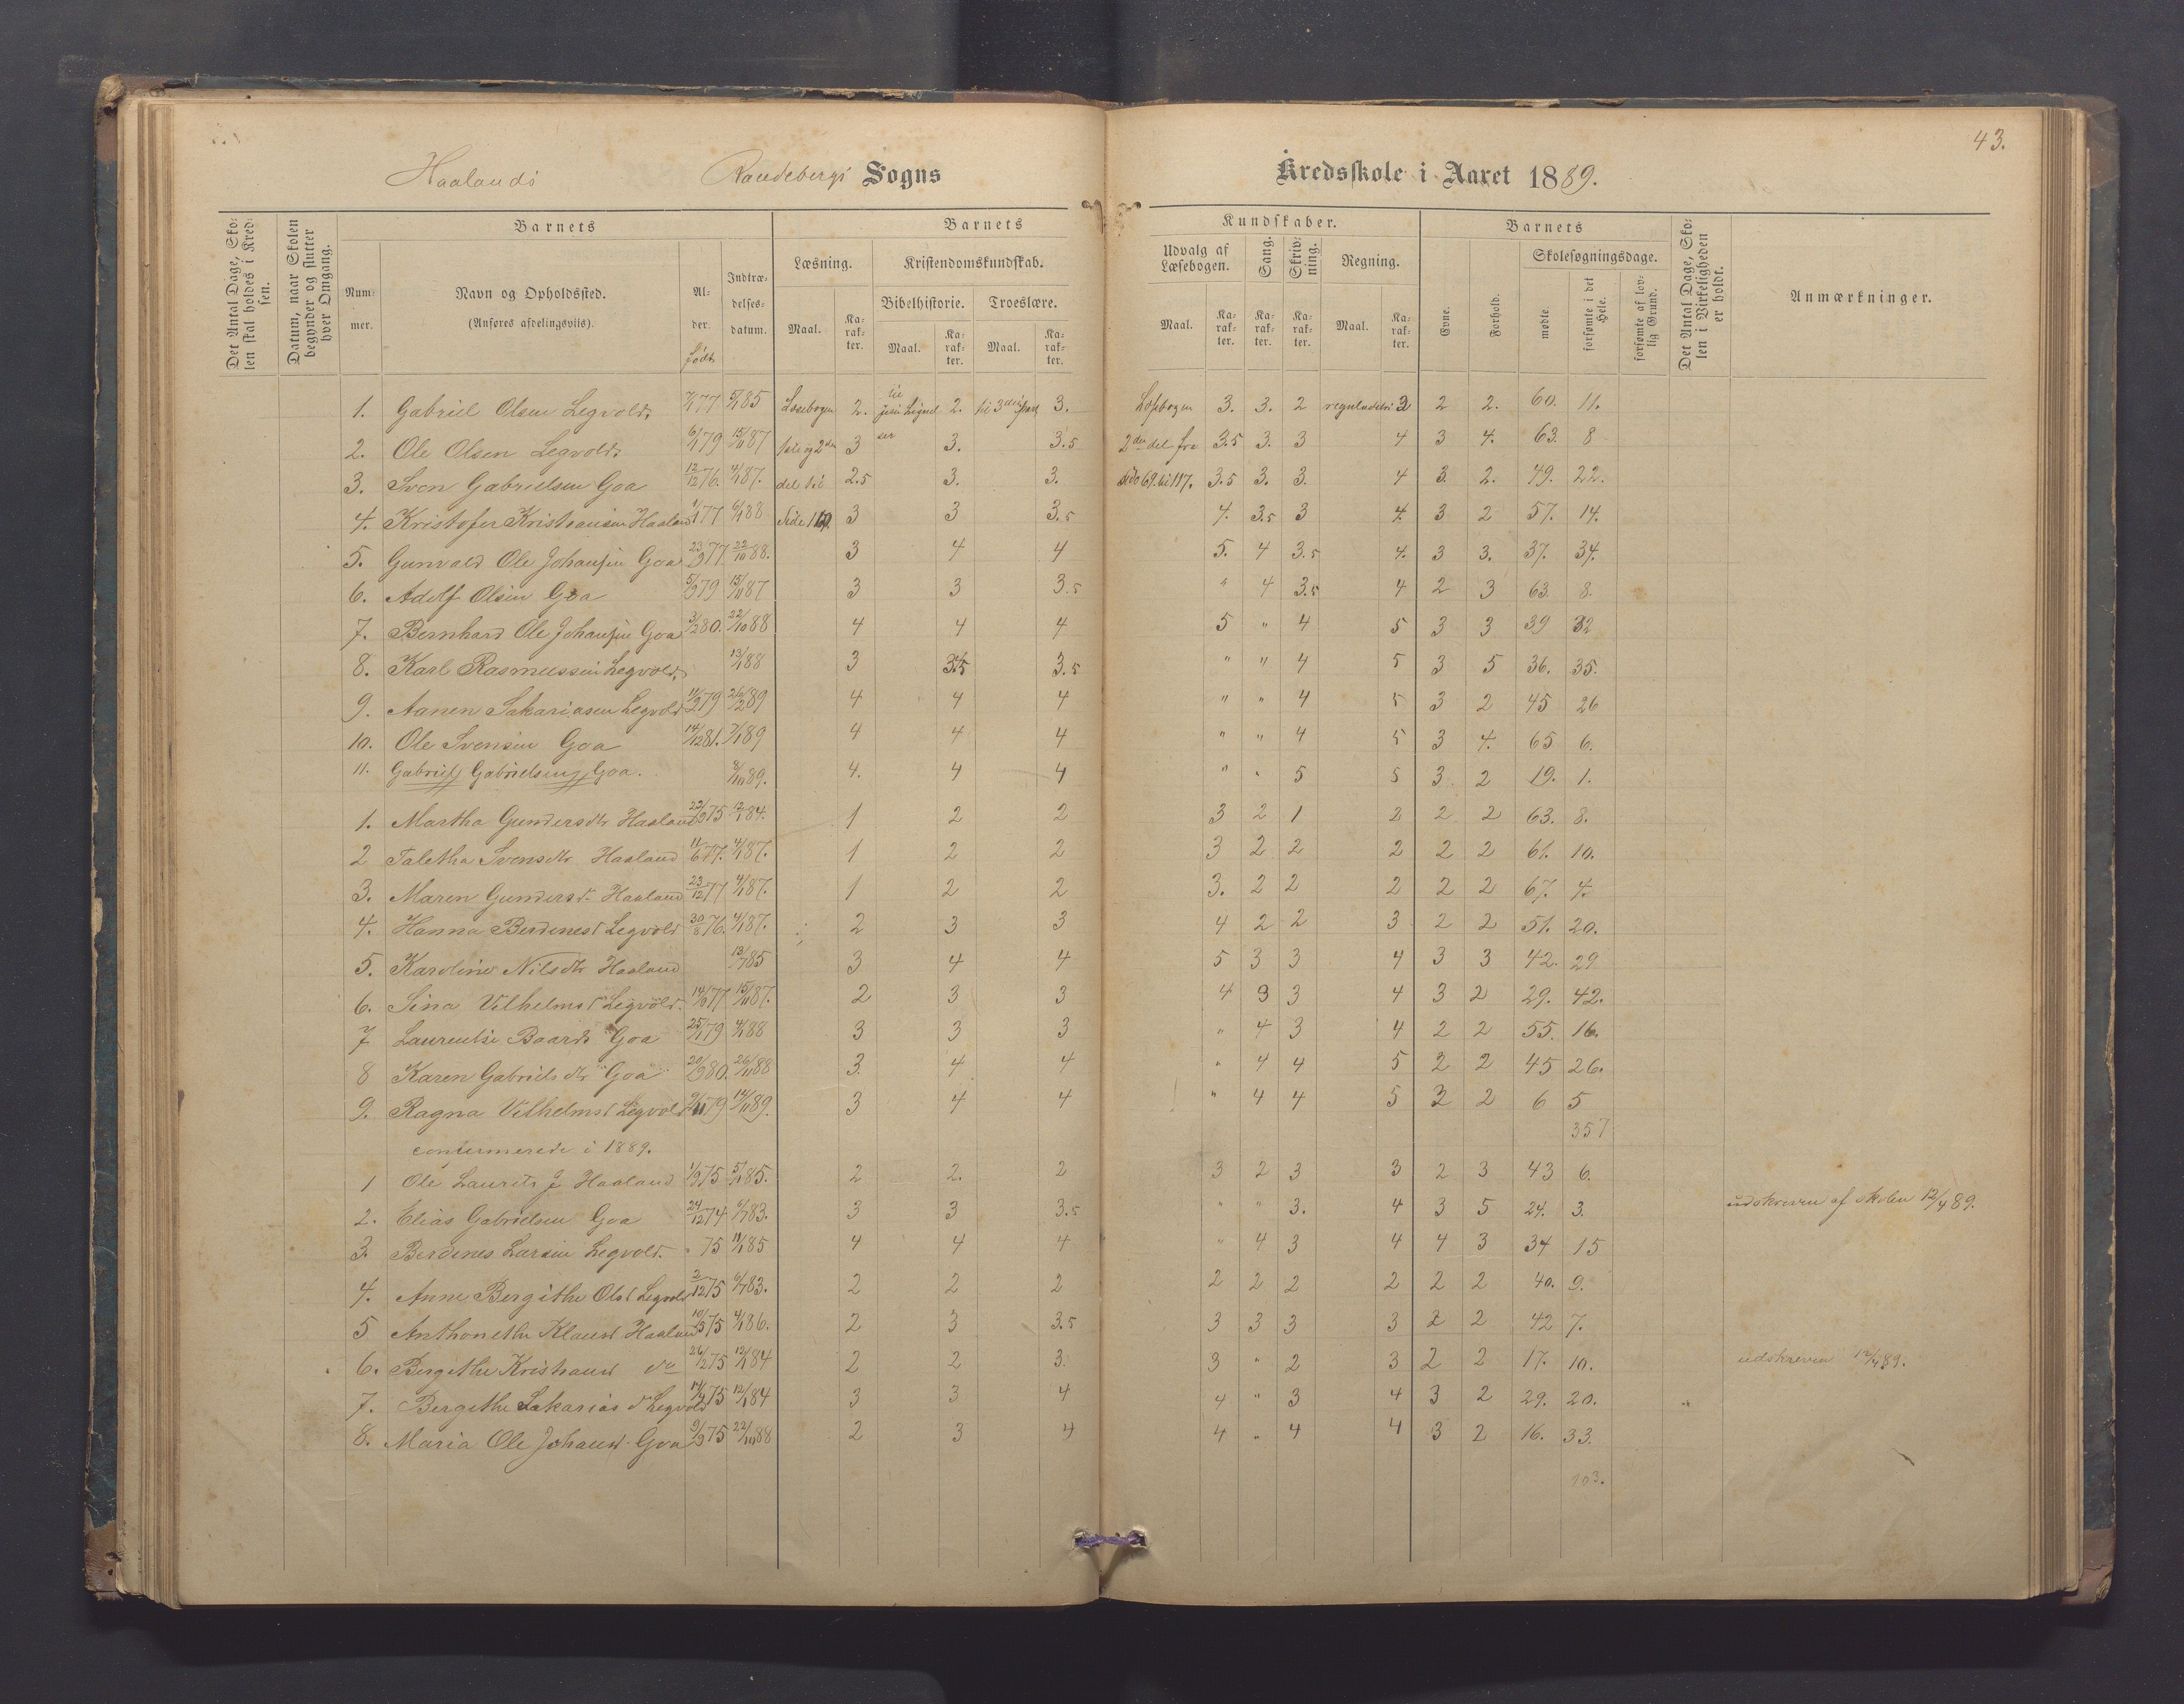 43.
Haalands Randebergs Sogns Kredsskole i Aaret 1889.
Det Antal Dage, Skolen skal holdes i Kredsen.
Datum, naar Skolen begynder og slutter hver Omgang.
Barnets
Nummer.
Navn og Opholdssted.
(Anføres afdelingsviis).
Alder.
født.
Indtrædelsesdatum.
Barnets
Læsning.
Maal.
Karakter.
Kristendomskundskab.
Bibelhistorie.
Maal.
Karakter.
Troeslære.
Maal.
Karakter.
Kundskaber.
Udvalg af Læsebogen.
Maal.
Karakter.
Sang.
Karakter.
Skrivning.
Karakter.
Regning.
Maal.
Karakter.
Barnets
Evne.
Forhold.
Skolesøgningsdage.
mødte.
forsømte i det Hele.
forsømte af lovlig Grund.
Det Antal Dage, Skolen i Virkeligheden er holdt.
Anmærkninger.
1. Gabriel Olsen Legvold. 77 5/1 85 Læsebogen 2. til 2. til 3 3. Læsbogen 3. 3. 2 reguladetri 3 2 2. 60. 11.
2. Ole Olsen Legvold. 6/1 79 15/11 87 3 3. 3.5 2den del fra 3.5 3. 3 4 3 4. 63. 8
3. Sven Gabrielsen Goa 12/12 76. 4/1 87. del til 2.5 3. 3. side 69 til 117. 3.5 3. 3. 4 3. 2. 49. 22.
4. Kristofer Kristiansen Haaland 77 6/1 88 Side 3 3 3.5 4. 3.5 3 4. 3 2 57. 14.
5. Gunvald Ole Johansen Goa 23/9 77. 22/10 88. 3 4 4 5. 4 3.5 4. 3 3. 37. 34.
6. Adolf Olsen Goa 5/9 79 15/11 87 3 3 3.5 " 4 3.5 4 2 3 63. 8.
7. Bernhard Ole Johansen Goa 3/2 80. 22/10 88 4 4 4 5 " 4 5 3 3 39 32
8. Karl Rasmussen Legvold. 13/1 88 3 3.5 3.5 " " 4 5 3 5 36. 35.
9. Aanen Sakariasen Legvold 11/2 79 26/2 89 4 4 4 " " 4 5 3 2 45 26
10. Ole Svensen Goa 14/12 81. 7/1 89 4 4 4 " " 4 5 3 4. 65 6.
11. Gabriel Gabrielsen Goa. 8/10 89. 4. 4 4 " " 5 5 3 2 19. 1.
1. Martha Gundersdtr Haaland 22/9 75 12/1 84. 1 2 2 3 2 1 2 2 2 63. 8.
2 Taletha Svensdtr Haaland 11/6 77. 4/1 87. 1 2 2 3 2 2 2 2 2 61. 10.
3. Maren Gundersd. Haaland 23/12 77 4/1 87. 1 2 2 3. 2 2 2 2 2 67. 4.
4. Hanna Berdinesd Legvold 30/8 76. 4/1 87. 2 3 3 4 2 2 3 2 2 51. 20.
5. Karoline Nilsdtr Haaland 13/1 85 3 4 4 5 3 3 4 3 3 42. 29
6. Sina Vilhelmsd Legvold. 14/9 77 15/11 87. 2 3 3 4 3 3 4 3 2 29. 42.
7 Laurentse Baards Goa 25/1 79 4/1 88 3 3 3 " 4 3 4 2 2 55. 16.
8 Karen Gabrielsdtr Goa 20/9 80. 26/11 88 3. 4 4 " 4 4 5 2 2 45 26.
9. Ragna Vilhelmsd Legvold 9/11 79 14/11 89. 3 4 4 " 4 4 5 3 2 6 5
357
confermerede i 1889.
1 Ole Laurits J Haaland 1/9 75 5/1 85. 2 2. 2 3 2 3 3 2 3 43 6.
2. Elias Gabrielsen Goa 24/12 74 6/1 83. 3 3 3.5 " " 3. 4 3 5 24. 3. udskreven af skolen 12/4 89.
3. Berdines Larsen Legvold. " 75 11/1 85 4 4 4 " 4 3 4 4 3 34 15
4. Anne Bergithe Olsd Legvold 2/12 75 6/1 83. 2 2 2 2 2 2 2 2 2 40. 9.
5 Anthonethe Klausd Haaland 10/5 75 4/1 86. 2 3 3.5 3 3 3 3 2 2 42 7.
6. Bergithe Kristiansd do 26/2 75 12/1 84 2 2 3. 3 " 2 3 2 2 17. 10. udskreven 12/4 89.
7. Bergithe Sakarias d Legvold 75 12/1 84 3 3 4 4 " 3 4 3 2 29. 20.
8. Maria Ole Johansd. Goa 9/9 75 22/10 88 2 3 4 4 " 4 4 3 2 16. 33.
103.